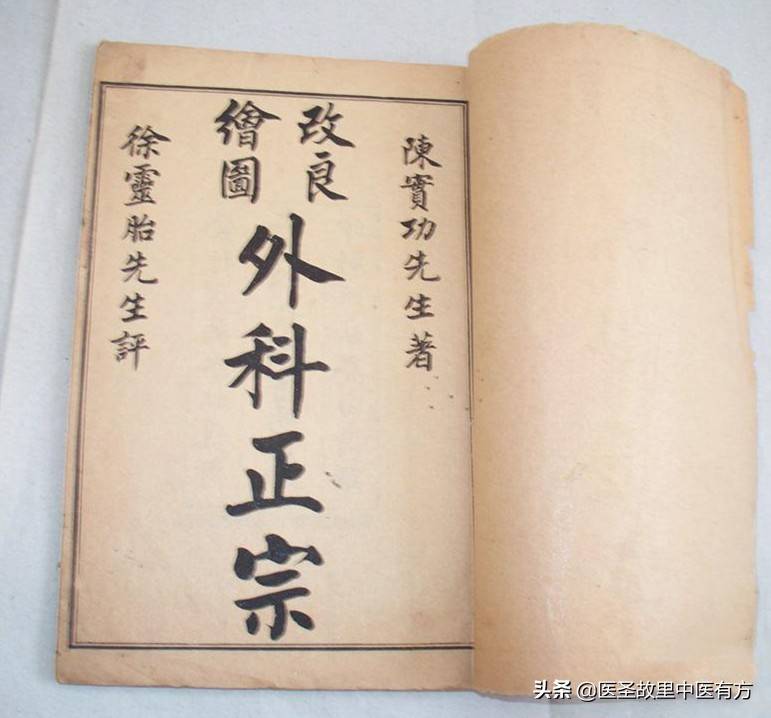 陳實功先生著
改良
繪圖
外科正宗
徐靈胎先生評
头条 @医圣故里中医有方